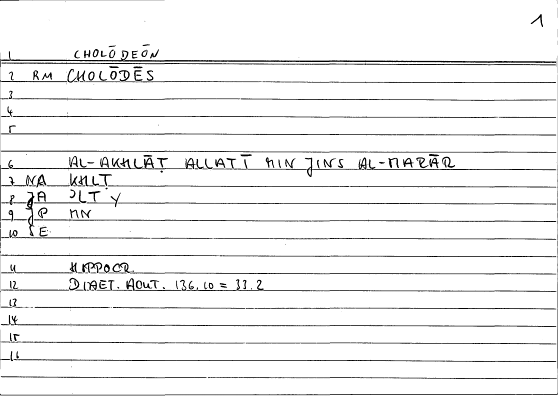 1
1 CHOLŌDEŌN
2 RM CHOLŌDĒS
3
4
5
6 AL-AKHLĀṬ ALLATĪ MIN JINS AL-MARĀR
7 NA KHLṬ
8 JA ʾLT Y
9 JP MN
10 JE
11 HIPPOCR.
12 DIAET. ACUT. 136.10 = 33.2
13
14
15
16